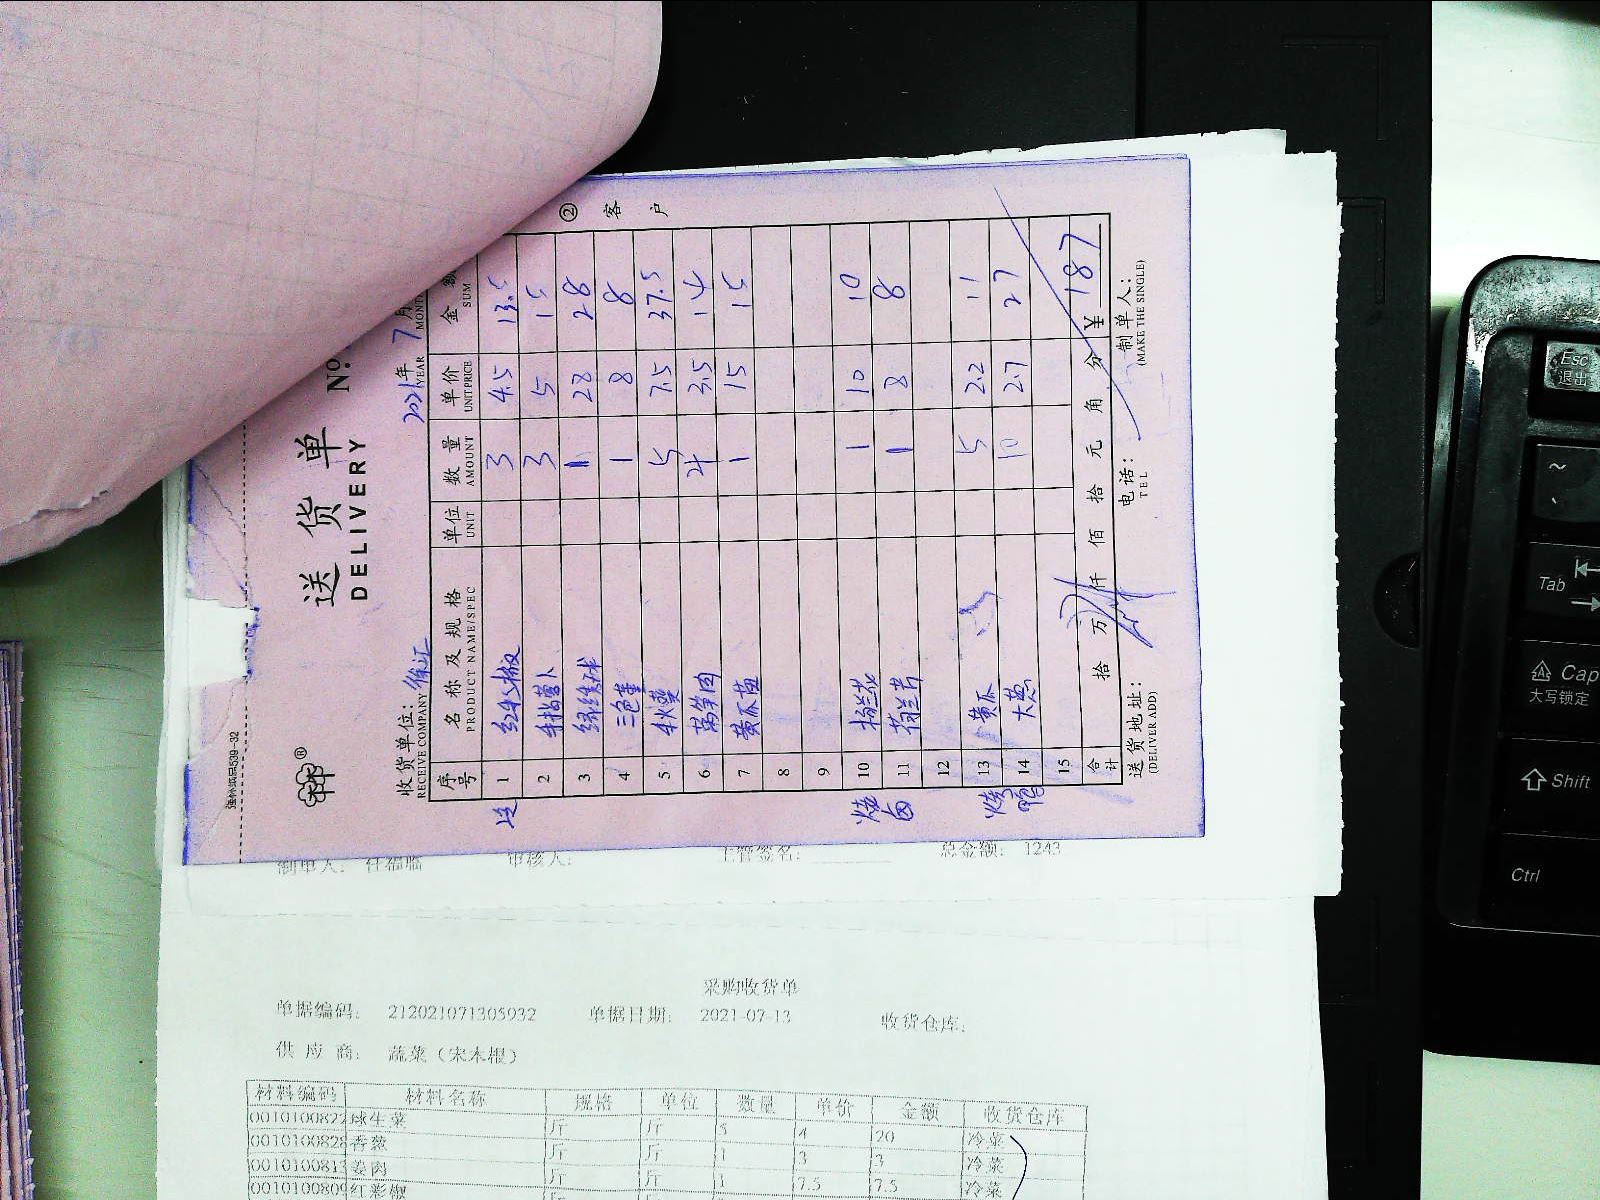 强林纸品539-32
送货单 Nº.
DELIVERY
② 客户
收货单位：徐汇 2021年 7月
RECEIVE COMPANY YEAR MONTH
序号 名称及规格 单位 数量 单价 金额
PRODUCT NAME/SPEC UNIT AMOUNT UNIT PRICE SUM
1 红牛角椒 3 4.5 13.5
2 手指萝卜 3 5 15
3 28 28
4 三色堇 1 8 8
5 秋葵 5 7.5 37.5
6 莴笋肉 4 3.5 14
7 黄瓜苗 1 15 15
8
9
烧卤
10 杨兰花 1 10 10
11 荷兰芹 1 8 8
12
烧鸭
13 黄瓜 5 2.2 11
14 大葱 10 2.7 27
15
合计 拾 万 仟 佰 拾 元 角 分 ¥ 187
送货地址： 电话： 制单人：
(DELIVER ADD) TEL (MAKE THE SINGLE)
制单人： 任福临 审核人： 主管签名： 总金额： 1243
采购收货单
单据编码： 212021071305932 单据日期： 2021-07-13 收货仓库：
供 应 商： 蔬菜（宋木根）
材料编码 材料名称 规格 单位 数量 单价 金额 收货仓库
0010100822 球生菜 斤 斤 5 4 20 冷菜
0010100828 香葱 斤 斤 1 3 3 冷菜
0010100813 姜肉 斤 斤 1 7.5 7.5 冷菜
0010100809 红彩椒
Esc
退出
~
Tab
Cap
大写锁定
Shift
Ctrl